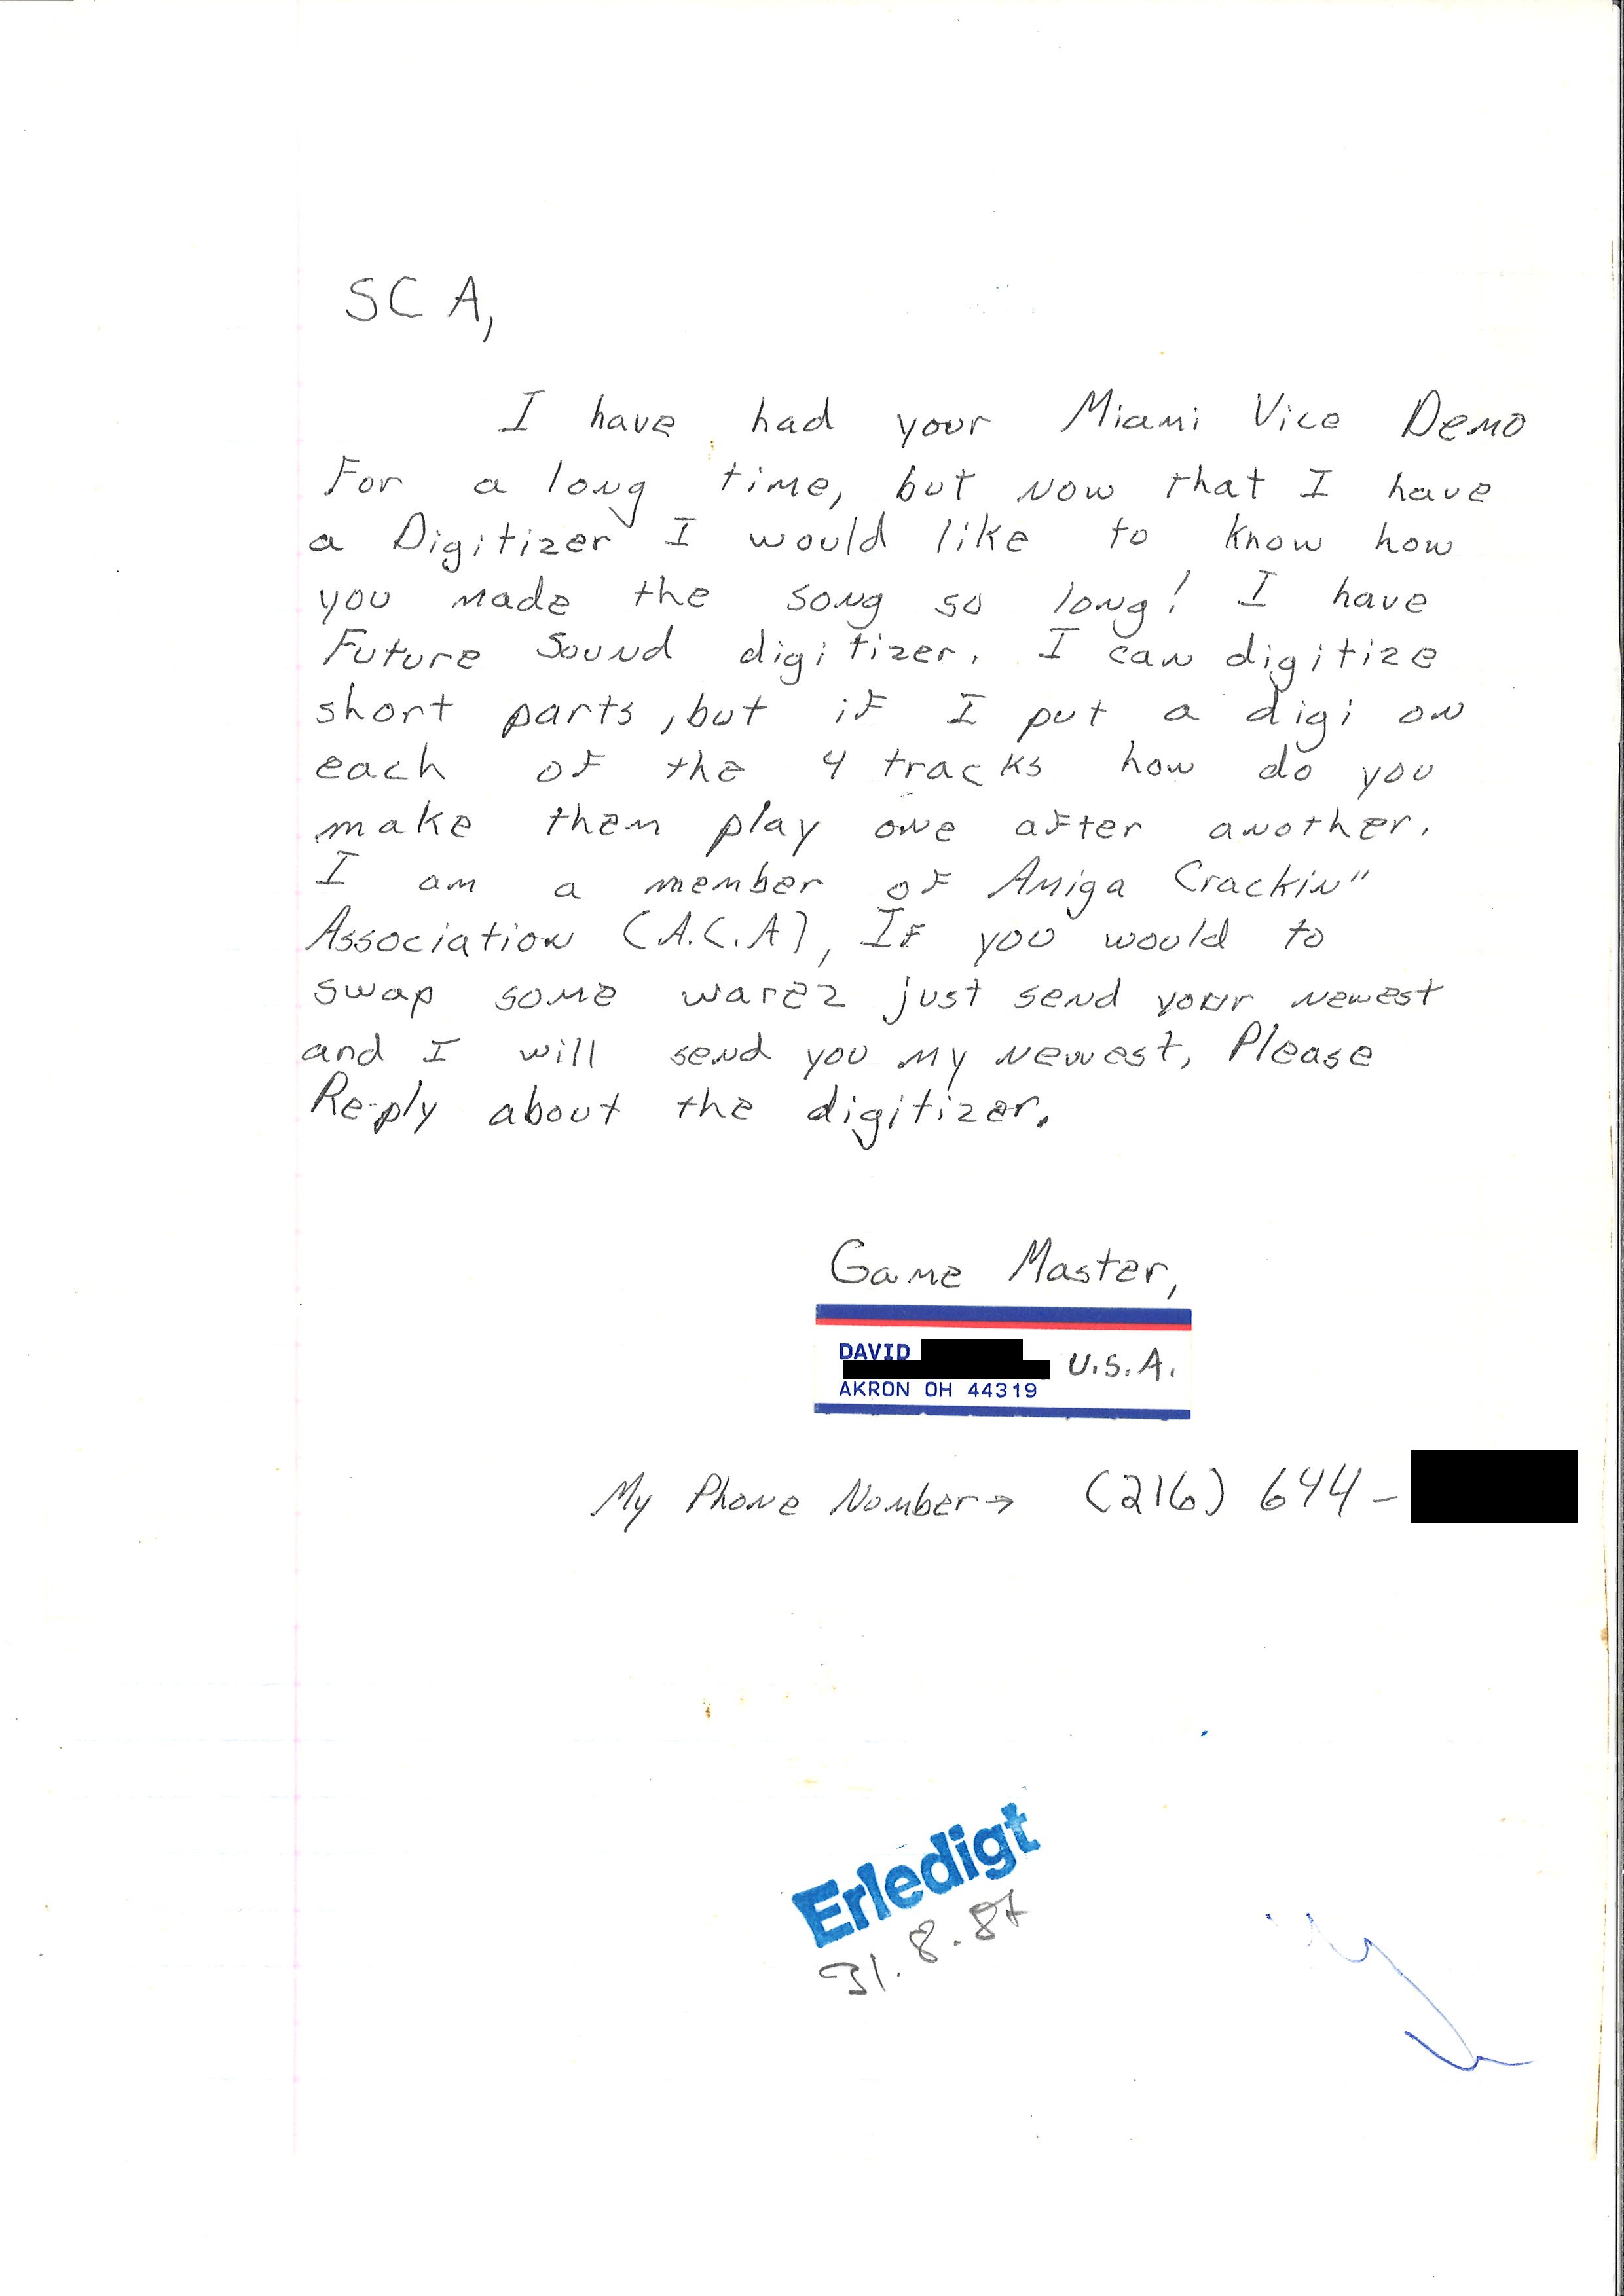 SCA,
I have had your Miami Vice Demo
For a long time, but now that I have
a Digitizer I would like to know how
you made the song so long! I have
Future Sound digitizer. I can digitize
short parts, but if I put a digi on
each of the 4 tracks how do you
make them play one after another.
I am a member of Amiga Crackin"
Association (A.C.A), If you would to
swap some warez just send your newest
and I will send you my newest, Please
Re-ply about the digitizer.
Game Master,
DAVID
U.S.A.
AKRON OH 44319
My Phone Number→ (216) 644-
Erledigt
31.8.87